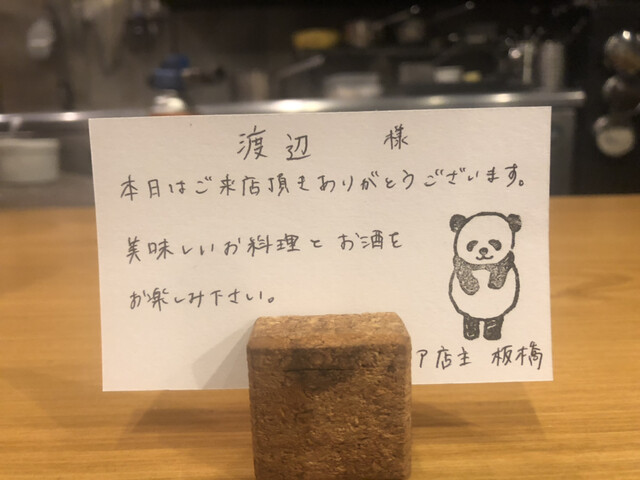 渡辺 様
本日はご来店頂きありがとうございます。
美味しいお料理とお酒を
お楽しみ下さい。
ア店主 板橋